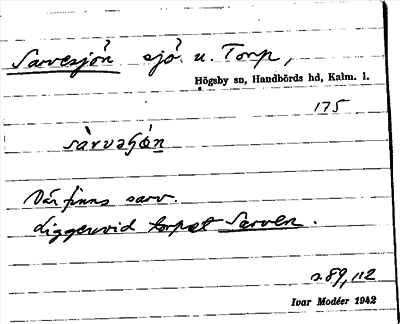 Sarvesjön sjö u. Torp,
Högsby sn, Handbörds hd, Kalm. l.
175
Där finns sarv.
Ligger vid torpet Sarven.
s 89, 112
Ivar Modéer 1942